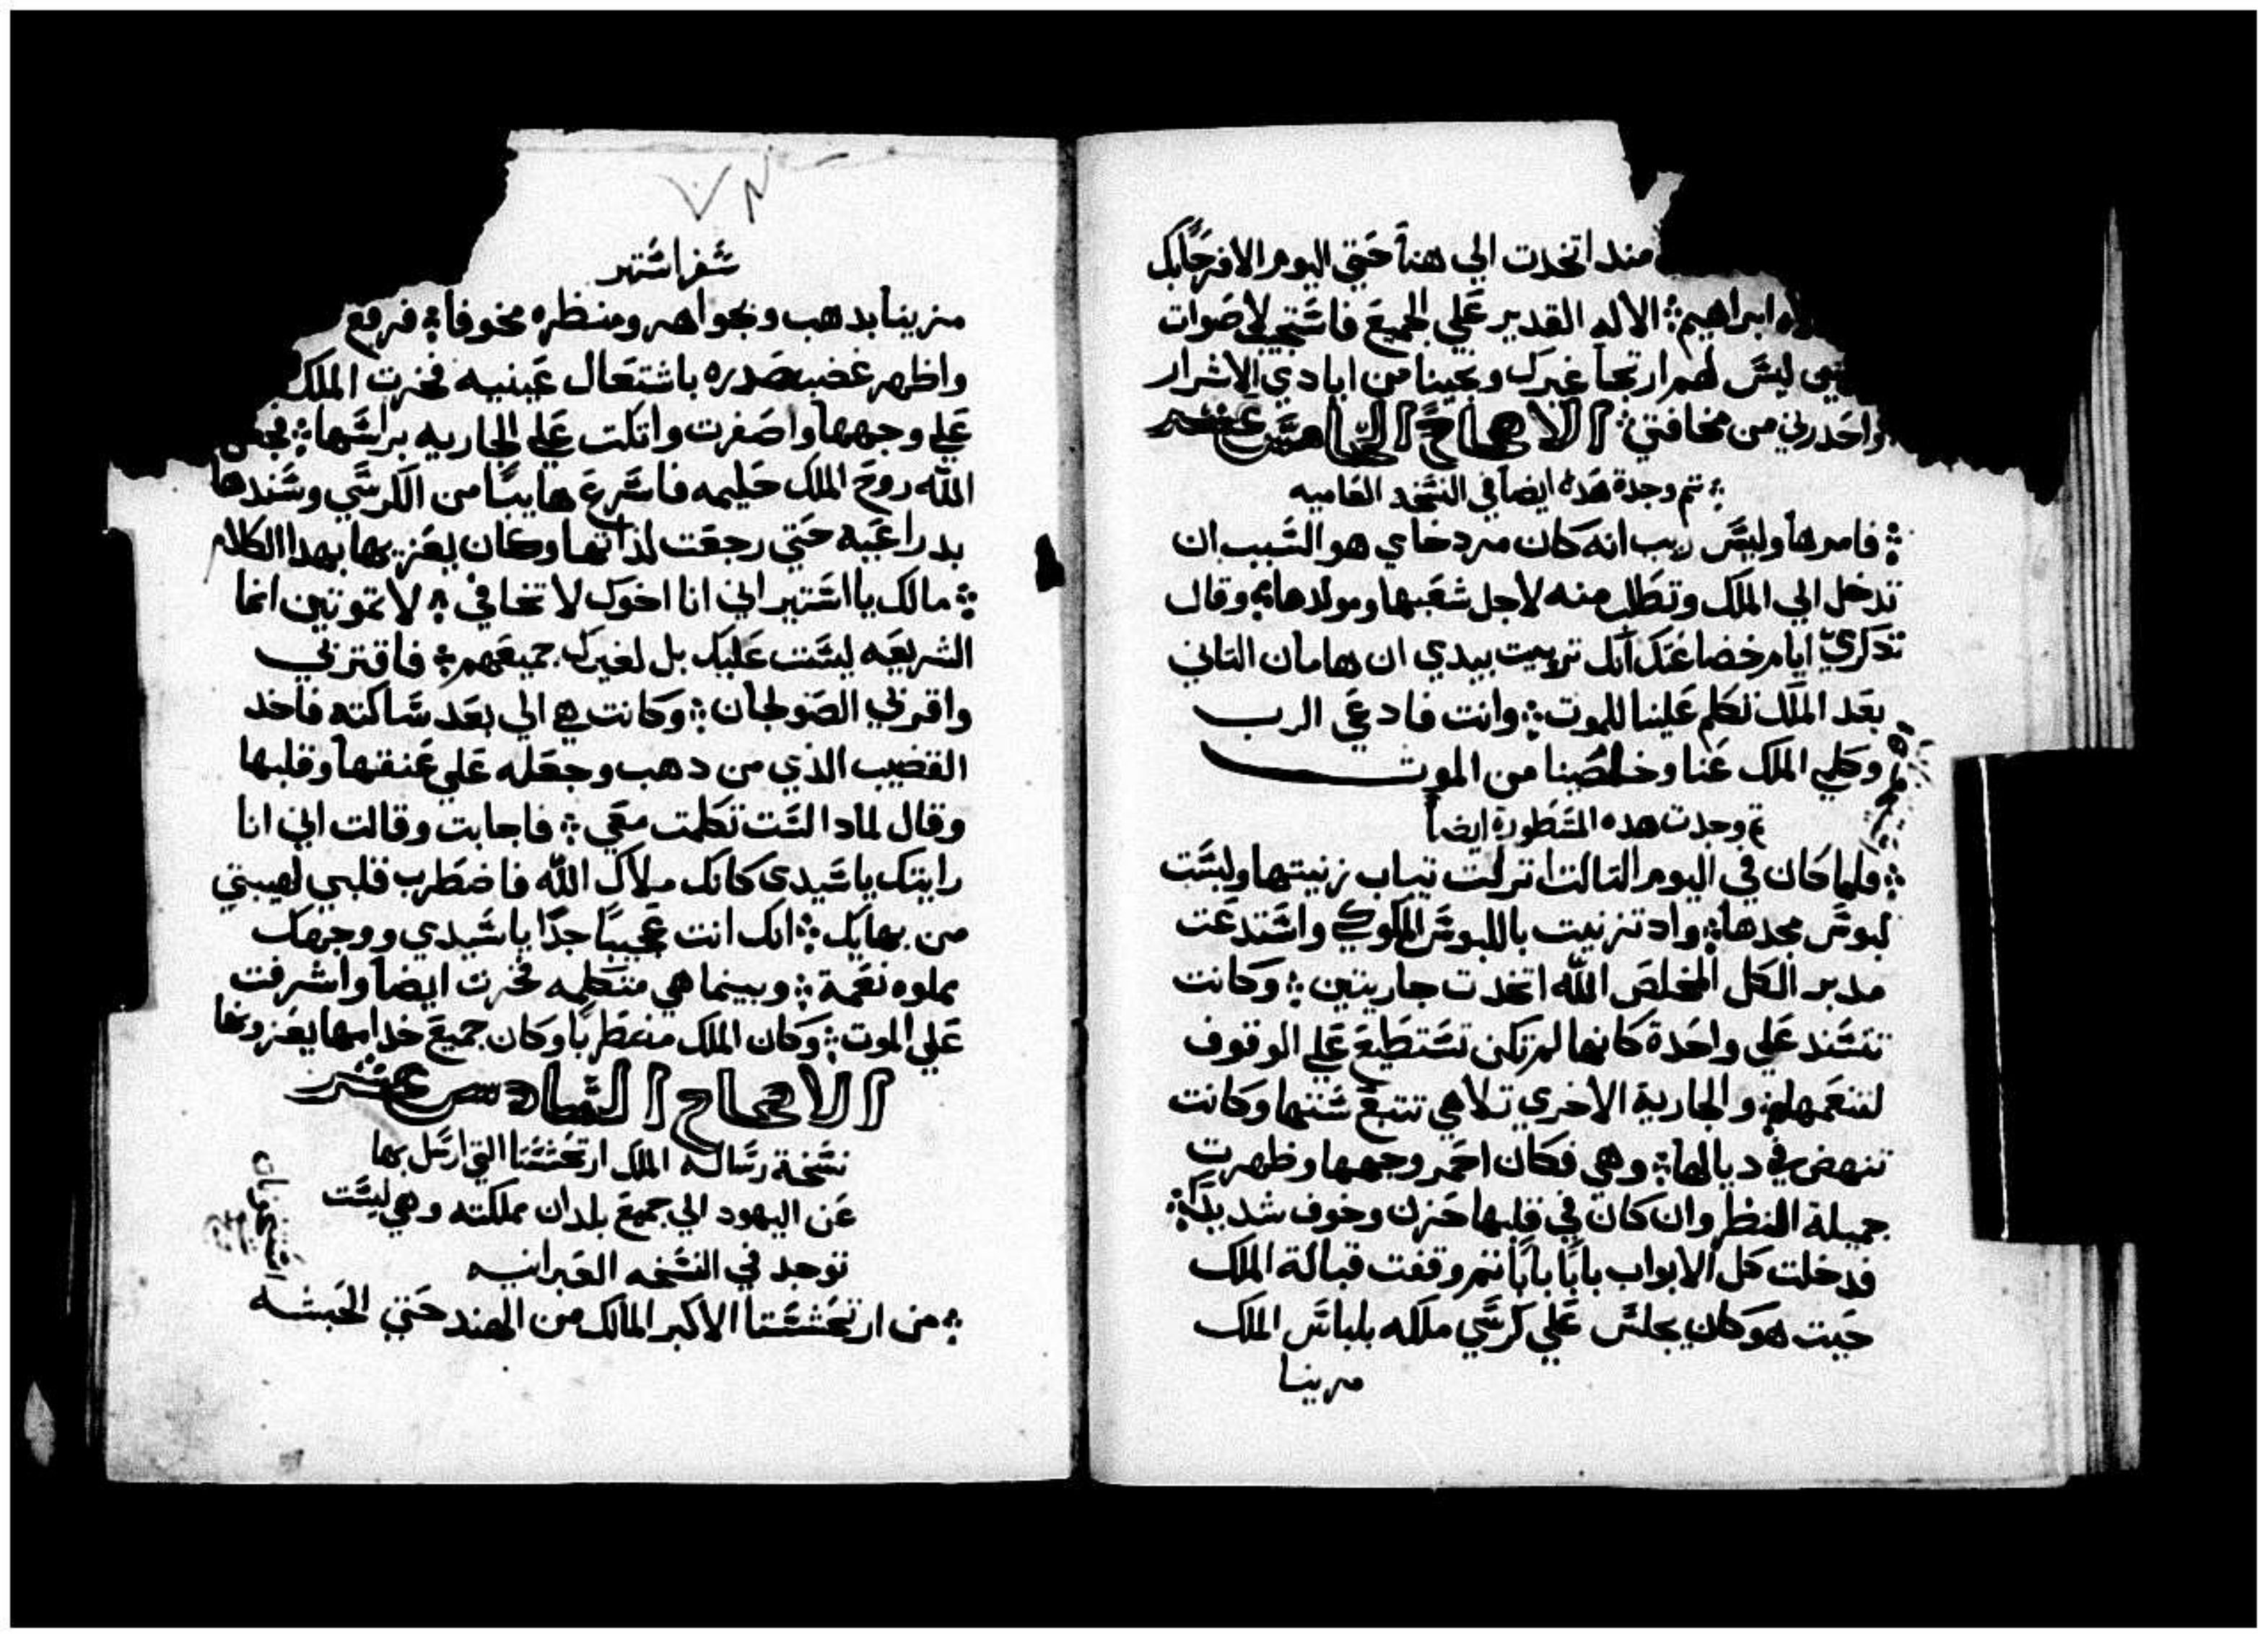 مند اتخدت الي هنا حتي اليوم الا فرحا بك
اله ابراهيم الاله القدير علي الجميع فاستجيب لاصوات
ليس لهم ارتجا غيرك ونجينا من ايادي الاشرار
واحدرني من مخافتي الاصحاح الخامس عشر
تم وجدة هده ايضا في النسخه العاميه
فامرها وليس ريب انه كان مردخاي هو السبب ان
تدخل الي الملك وتطلب منه لاجل شعبها ومولدها وقال
تدكري ايام رخضاعتك انك تربيت بيدي ان هامان التاني
بعد الملك تكلم علينا للموت وانت فادعي الرب
وكلمي الملك عنا وخلصينا من الموت
تم وجدت هده المسطورة ايضا
فلما كان في اليوم التالت انزلت تياب زينتها ولبست
لبوس مجدها واد تزنيت باللبوس الملوكي واستدعت
مدبر الكل المخلص الله اتخدت جاريتين وكانت
تتسند علي واحدة كانها لم تكن تستطيع علي الوقوف
لتنعمها والجارية الاخري تلاهي تتبع ستها وكانت
تنهض في ديالها وهي فكان احمر وجهها وظهرت
جميلة المنظر وان كان في قلبها حزن وخوف شديد
فدخلت كل الابواب بابا بابا تم وقفت قبالة الملك
حيت هو كان يجلس علي كرسي ملكه بلباس الملك
مزينا
سفر استير
مزينا بدهب وبجواهر ومنظره مخوفا فرفع
واظهر غضب صدره باشتعال عينيه فخرت الملكه
علي وجهها واصفرت واتكت علي الجاريه براسها فجعل
الله روح الملك حليمه فاسرع هايبا من الكرسي وسندها
بدراعيه حتي رجعت لداتها وكان يعزيها بهدا الكلام
مالك يا استير اني انا اخوك لا تخافي لا تموتين انما
الشريعه ليست عليك بل لغيرك جميعهم فاقتربي
واقربي الصولجان وكانت هي الي بعد ساكته فاخد
القضيب الذي من دهب وجعله علي عنقها وقلبها
وقال لمادا لست تكلمت معي فاجابت وقالت اني انا
رايتك يا سيدي كانك ملاك الله فاضطرب قلبي لهيبتي
من بهايك انك انت عجيبا جدا يا سيدي ووجهك
مملوه نعمة وبينما هي متكلمه فخرت ايضا واشرفت
علي الموت وكان الملك منعطربا وكان جميع خدامها يعزونها
الاصحاح السادس عشر
نسخة رسالة الملك ارتحشستا التي ارسل بها
عن اليهود الي جميع بلدان مملكته وهي ليست
توجد في النسخه العبرانيه
من ارتحشستا الاكبر المالك من الهند حتي الحبشه